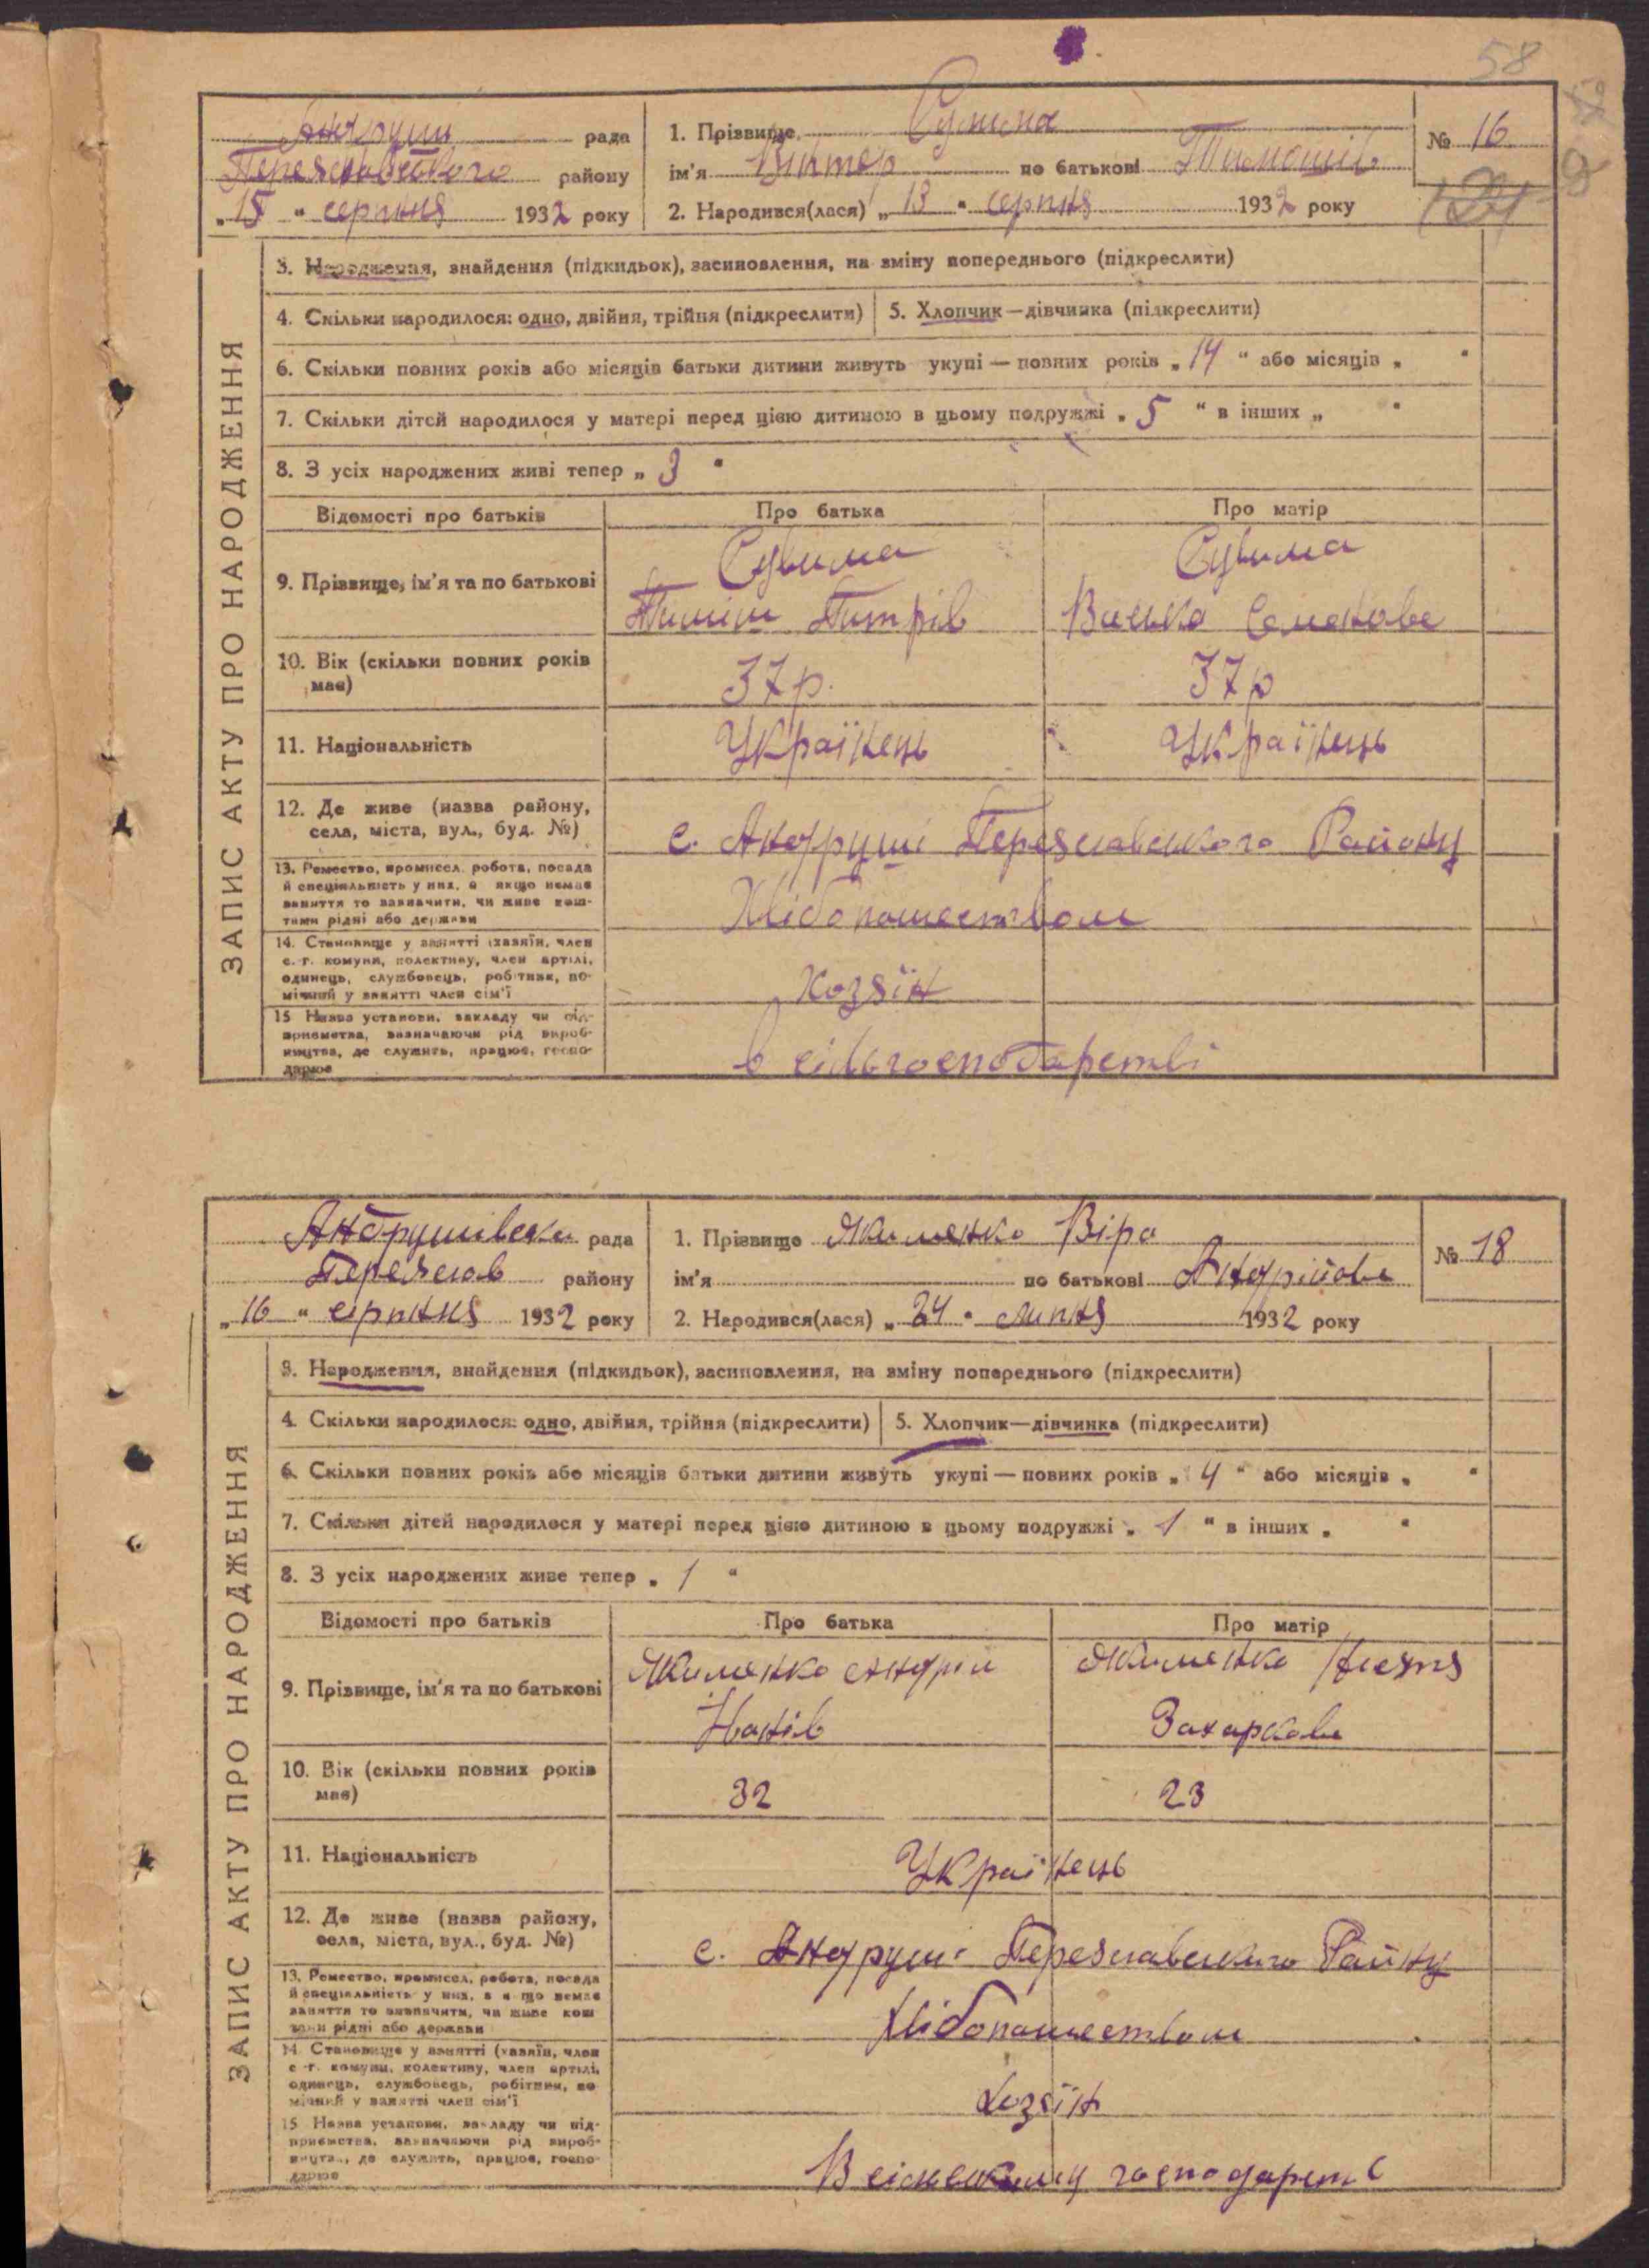 58
Андруши рада
Переяславського району
„15“ серпня 1932 року
1. Прізвище Сулима
ім'я Віктор по батькові Тимошів
2. Народився(лася) „13“ серпня 1932 року
№ 16
ЗАПИС АКТУ ПРО НАРОДЖЕННЯ
3. Народження, знайдення (підкидьок), засиновлення, на зміну попереднього (підкреслити)
4. Скільки народилося: одно, двійня, трійня (підкреслити) 5. Хлопчик—дівчинка (підкреслити)
6. Скільки повних років або місяців батьки дитини живуть укупі — повних років „14“ або місяців „ “
7. Скільки дітей народилося у матері перед цією дитиною в цьому подружжі „5“ в інших „ “
8. З усіх народжених живі тепер „3“
Відомості про батьків Про батька Про матір
9. Прізвище, ім'я та по батькові
Сулима Сулима
Тиміш Питрів Семенова
10. Вік (скільки повних років має) 37р. 37р
11. Національність Українець Українець
12. Де живе (назва району, села, міста, вул., буд. №)
с. Андруші Переяславського Району
13. Ремество, промисел, робота, посада
й спеціяльність у них, а якщо немає
заняття то зазначити, чи живе кош-
тами рідні або держави
Хлібопашеством
14. Становище у занятті (хазяїн, член
с.-г. комуни, колективу, член артілі,
одинець, службовець, робітник, по-
мічний у занятті член сім'ї
хозяїн
15 Назва установи, закладу чи під-
приємства, зазначаючи рід вироб-
ництва, де служить, працює, госпо-
дарює
в сільгосподарстві
Андрушівска рада
Переяслав району
„16“ серпня 1932 року
1. Прізвище Якименко Віра
ім'я по батькові Андрійова
2. Народився(лася) „24“ липня 1932 року
№ 18
ЗАПИС АКТУ ПРО НАРОДЖЕННЯ
3. Народження, знайдення (підкидьок), засиновлення, на зміну попереднього (підкреслити)
4. Скільки народилося: одно, двійня, трійня (підкреслити) 5. Хлопчик—дівчинка (підкреслити)
6. Скільки повних років або місяців батьки дитини живуть укупі — повних років „4“ або місяців „ “
7. Скільки дітей народилося у матері перед цією дитиною в цьому подружжі „1“ в інших „ “
8. З усіх народжених живе тепер „1“
Відомості про батьків Про батька Про матір
9. Прізвище, ім'я та по батькові
Якименко Андрій Якименко Настя
Іванів Захаркова
10. Вік (скільки повних років має) 32 23
11. Національність Українець
12. Де живе (назва району, села, міста, вул., буд. №)
с. Андруші Переяславського Району
13. Ремество, промисел, робота, посада
й спеціяльність у них, а якщо немає
заняття то зазначити, чи живе кош
тами рідні або держави
Хлібопашеством
14. Становище у занятті (хазяїн, член
с-г. комуни, колективу, член артілі,
одинець, службовець, робітник, по
мічний у занятті член сім'ї
Хозяїн
15 Назва установи, закладу чи під-
приємства, зазначаючи рід вироб-
ництва, де служить, працює, госпо-
дарює
В сільському господарстві